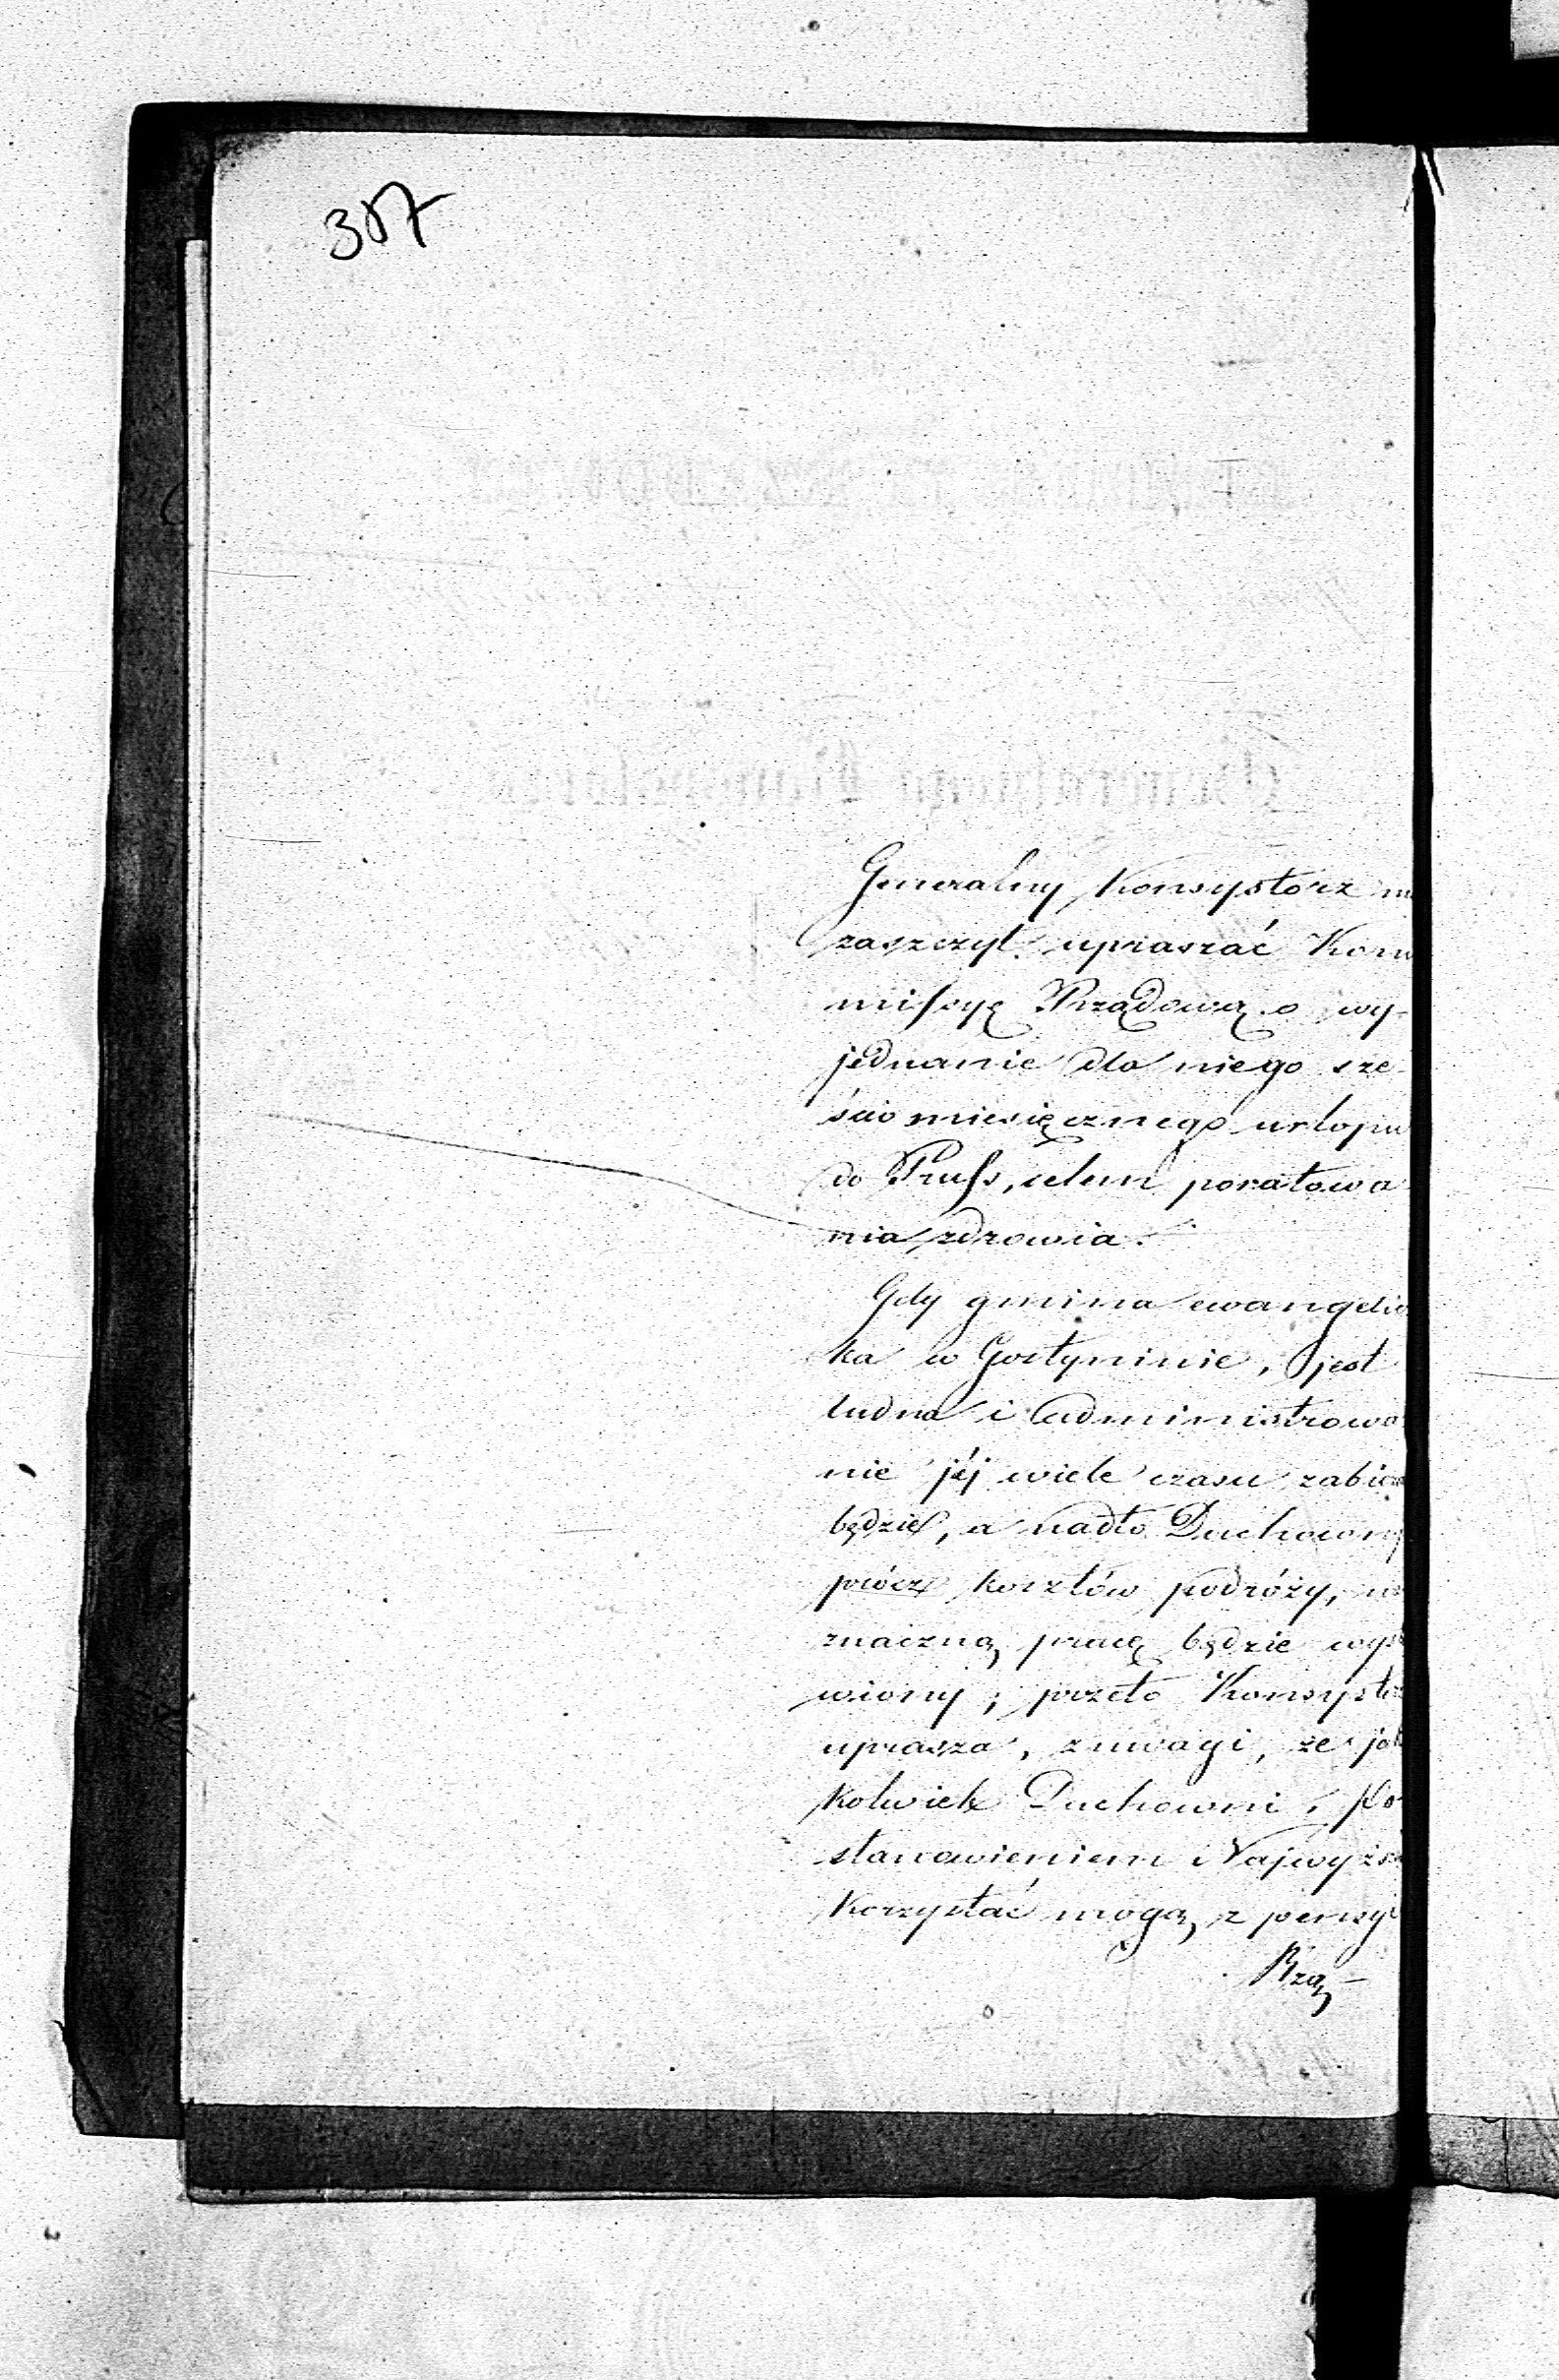 307
Generalny Konsystorz m
zaszczyt upraszać Kom
missyę Rządową o wy-
jednanie dla niego sze-
ścio miesięcznego urlopu
do Pruss, celem poratowa
nia zdrowia.
Gdy gmina ewangelic
ka w Gostyninie, jest
ludna i administrowa
nie jéj wiele czasu zabier
będzie, a nadto Duchowny
prócz kosztów podróży, na
znaczną pracę będzie wyst
wiony; przeto Konsystorz
uprasza, z uwagi, że jak
kolwiek Duchowni, Po
stanowieniem Najwyższ
korzystać mogą z pensyi
Rzą-